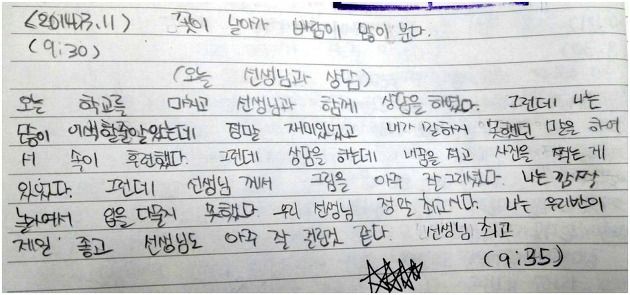 <2014.3.11> 꽃이 날아가 바람이 많이 분다.
(9:30)
(오늘 선생님과 상담)
오늘 학교를 마치고 선생님과 함께 상담을 하였다. 그런데 나는
많이 어색할줄알았는데 정말 재미있었고 내가 말하지 못했던 말을 하여
서 속이 후련했다. 그런데 상담을 하는데 내꿈을 적고 사진을 찍는 게
있었다. 그런데 선생님 께서 그림을 아주 잘 그리셨다. 나는 깜짝
놀라서 입을 다물지 못했다. 우리 선생님 정말 최고시다. 나는 우리반이
제일 좋고 선생님도 아주 잘 걸린것 같다. 선생님 최고
(9:35)